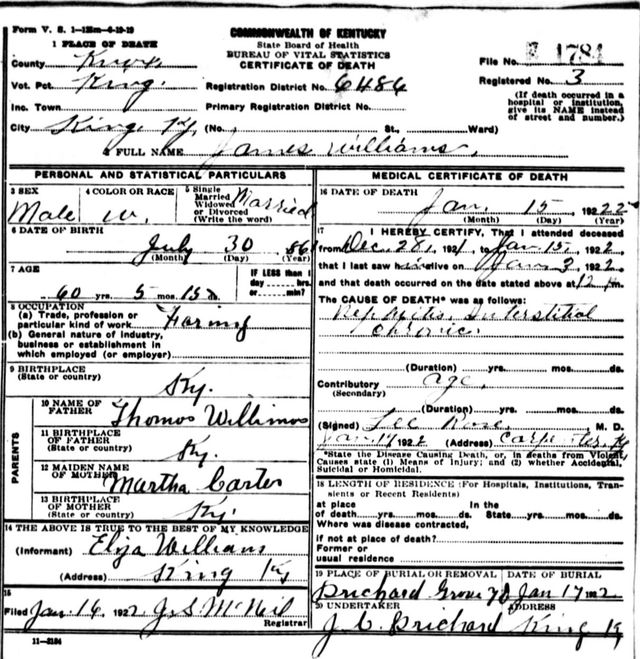 Form V. S. 1-125m-6-19-19
COMMONWEALTH OF KENTUCKY
State Board of Health
BUREAU OF VITAL STATISTICS
CERTIFICATE OF DEATH
1 PLACE OF DEATH
County Knox
Vot. Pct. King
Inc. Town
City King Ky
Registration District No. 6486
Primary Registration District No.
(No. St., Ward)
File No. 1784
Registered No. 3
(If death occurred in a
hospital or institution,
give its NAME instead
of street and number.)
2 FULL NAME James Williams
PERSONAL AND STATISTICAL PARTICULARS
3 SEX
Male
4 COLOR OR RACE
W.
5 Single
Married
Widowed
or Divorced
(Write the word)
Married
6 DATE OF BIRTH
July 30 1861
(Month) (Day) (Year)
7 AGE
60 yrs. 5 mos. 15 ds.
IF LESS than 1
day hrs.
or min?
8 OCCUPATION
(a) Trade, profession or
particular kind of work Faring
(b) General nature of industry,
business or establishment in
which employed (or employer)
9 BIRTHPLACE
(State or country)
Ky.
PARENTS
10 NAME OF
FATHER
Thomas Willimas
11 BIRTHPLACE
OF FATHER
(State or country)
Ky.
12 MAIDEN NAME
OF MOTHER
Martha Carter
13 BIRTHPLACE
OF MOTHER
(State or country)
Ky.
14 THE ABOVE IS TRUE TO THE BEST OF MY KNOWLEDGE
(Informant) Eliza Williams
(Address) King Ky
15
Filed Jan. 16 1922 J. S. McNeil
Registrar
11-3184
MEDICAL CERTIFICATE OF DEATH
16 DATE OF DEATH
Jan. 15 1922
(Month) (Day) (Year)
17 I HEREBY CERTIFY, That I attended deceased
from Dec. 28, 1921, to Jan. 15, 1922
that I last saw him alive on Jan 3 1922
and that death occurred on the date stated above at 12
The CAUSE OF DEATH* was as follows:
Nephritis, Interstitial
Chronic.
(Duration) yrs. mos. ds.
Contributory Age.
(Secondary)
(Duration) yrs. mos. ds.
(Signed) Lee Rose, M. D.
Jan. 17 1922 (Address) Carpenter, Ky
*State the Disease Causing Death, or, in deaths from Violent
Causes state (1) Means of Injury; and (2) whether Accidental,
Suicidal or Homicidal.
18 LENGTH OF RESIDENCE (For Hospitals, Institutions, Transients
or Recent Residents)
at place In the
of death yrs. mos. ds. State yrs. mos. ds.
Where was disease contracted,
if not at place of death?
Former or
usual residence
19 PLACE OF BURIAL OR REMOVAL
Prichard Grove yd
DATE OF BURIAL
Jan 17 1922
20 UNDERTAKER
J. C. Prichard
ADDRESS
King Ky